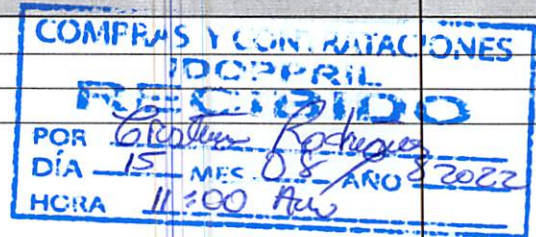 COMPRAS Y CONTRATACIONES
IDOPPRIL
RECIBIDO
POR Cristina Rodriguez
DÍA 15 MES 08 AÑO 2022
HORA 11:00 Am